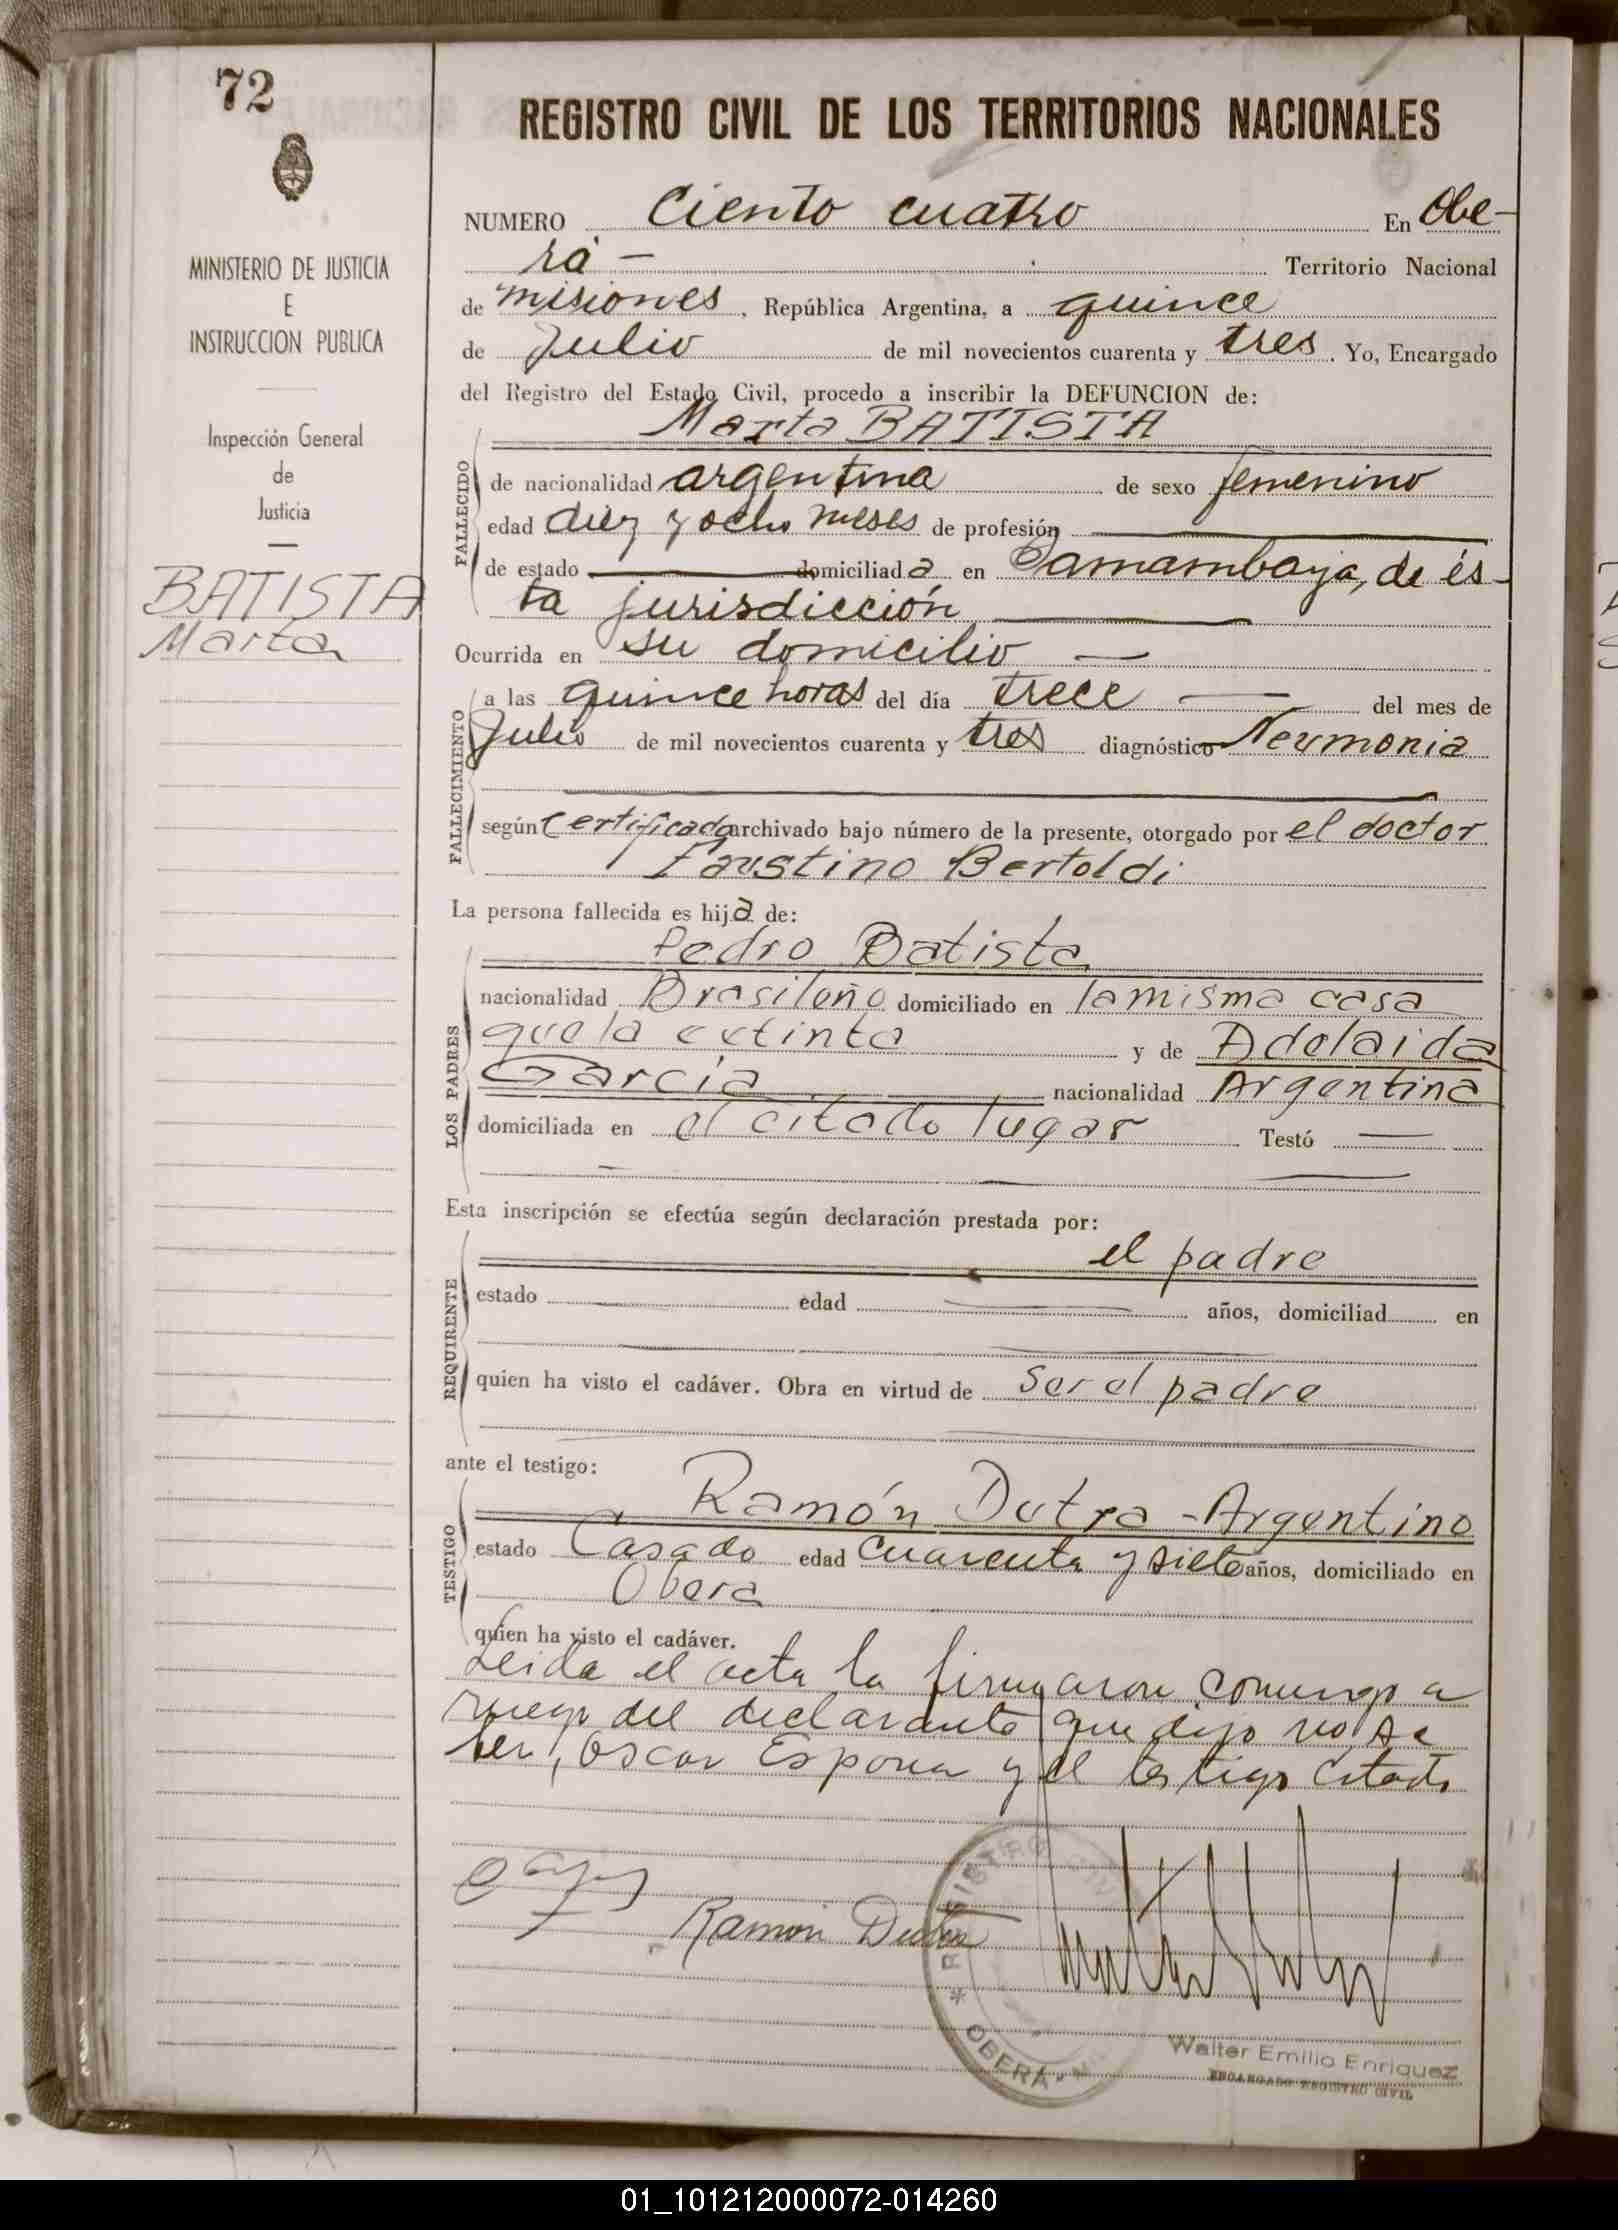 72
REGISTRO CIVIL DE LOS TERRITORIOS NACIONALES
MINISTERIO DE JUSTICIA
E
INSTRUCCION PUBLICA
Inspección General
de
Justicia
BATISTA
Marta
NUMERO Ciento cuatro En Obe-
rá - Territorio Nacional
de misiones, República Argentina, a quince
de Julio de mil novecientos cuarenta y tres. Yo, Encargado
del Registro del Estado Civil, procedo a inscribir la DEFUNCION de:
Marta BATISTA
FALLECIDO
de nacionalidad argentina de sexo femenino
edad diez y ocho meses de profesión
de estado domiciliada en Samambaya, de és-
ta jurisdicción
Ocurrida en su domicilio -
FALLECIMIENTO
a las quince horas del día trece - del mes de
Julio de mil novecientos cuarenta y tres diagnóstico Neumonia
según certificado archivado bajo número de la presente, otorgado por el doctor
Faustino Bertoldi
La persona fallecida es hija de:
LOS PADRES
Pedro Batista
nacionalidad Brasileño domiciliado en la misma casa
que la extinta y de Adelaida
García nacionalidad Argentina
domiciliada en el citado lugar Testó -
Esta inscripción se efectúa según declaración prestada por:
REQUIRENTE
el padre
estado edad años, domiciliad en
quien ha visto el cadáver. Obra en virtud de Ser el padre
ante el testigo:
TESTIGO
Ramón Dutra - Argentino
estado Casado edad cuarenta y siete años, domiciliado en
Obera
quien ha visto el cadáver.
Leida el acta la firmaron conmigo a
ruego del declarante que dijo no sa
ber, Oscar Espona y el testigo citado
Ramon Dutra
REGISTRO CIVIL
* OBERÁ
Walter Emilio Enriquez
ENCARGADO REGISTRO CIVIL
01_101212000072-014260